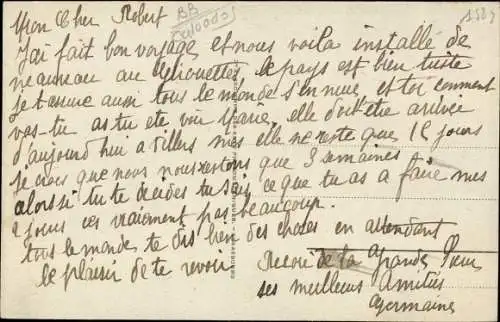 Mon Cher Robert
J'ai fait bon voyage et nous voila installé de
neauneau au le pays est bien triste
je t'assure aussi tous le monde s'ennuie et toi comment
vas-tu as tu ete voir elle doit etre arrivée
d'aujourd'hui a Villers mes elle ne reste que 12 jours
je crois que nous nous restons que 3 semaines
alors si tu te decides tu sais ce que tu as a faire mes
2 jours ces vraiment pas beaucoup.
tous le monde te dis bien des choses en attendant
le plaisir de te revoir
Recois de la Grande Soeur
ses meilleurs Amitiés
Germaine